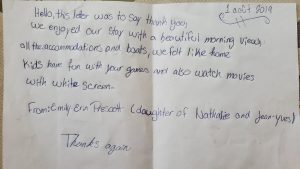 1 août 2019
Hello, this later was to say thank you,
we enjoyed our stay with a beautiful morning views
all the accommodations and boats, we felt like home
Kids have fun with your games and also watch movies
with white screen.
From: Emily Erin Prescott (daughter of Nathalie and Jean-yves)
Thanks again